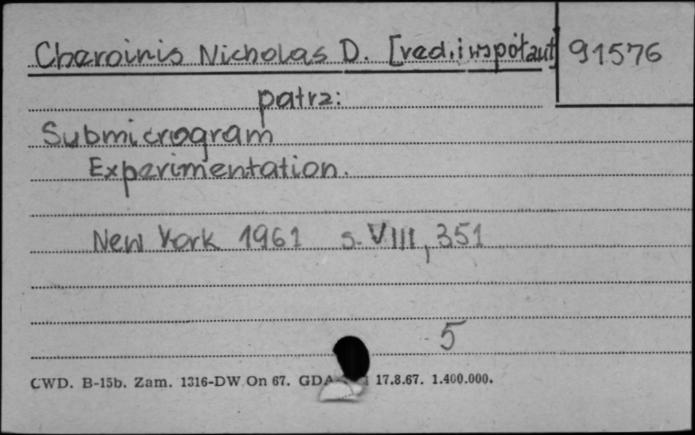 Cheroinis Nicholas D. [red. i współaut] 91576
patrz:
Submicrogram
Experimentation.
New York 1961 s. VIII, 351
5
CWD. B-15b. Zam. 1316-DW On 67. GDA 17.8.67. 1.400.000.